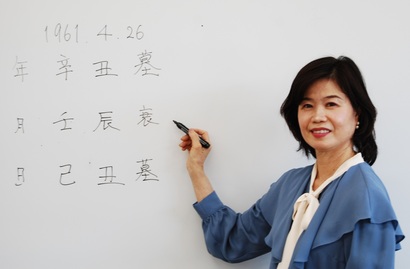 1961.4.26
年 辛 丑 墓
月 壬 辰 衰
日 己 丑 墓